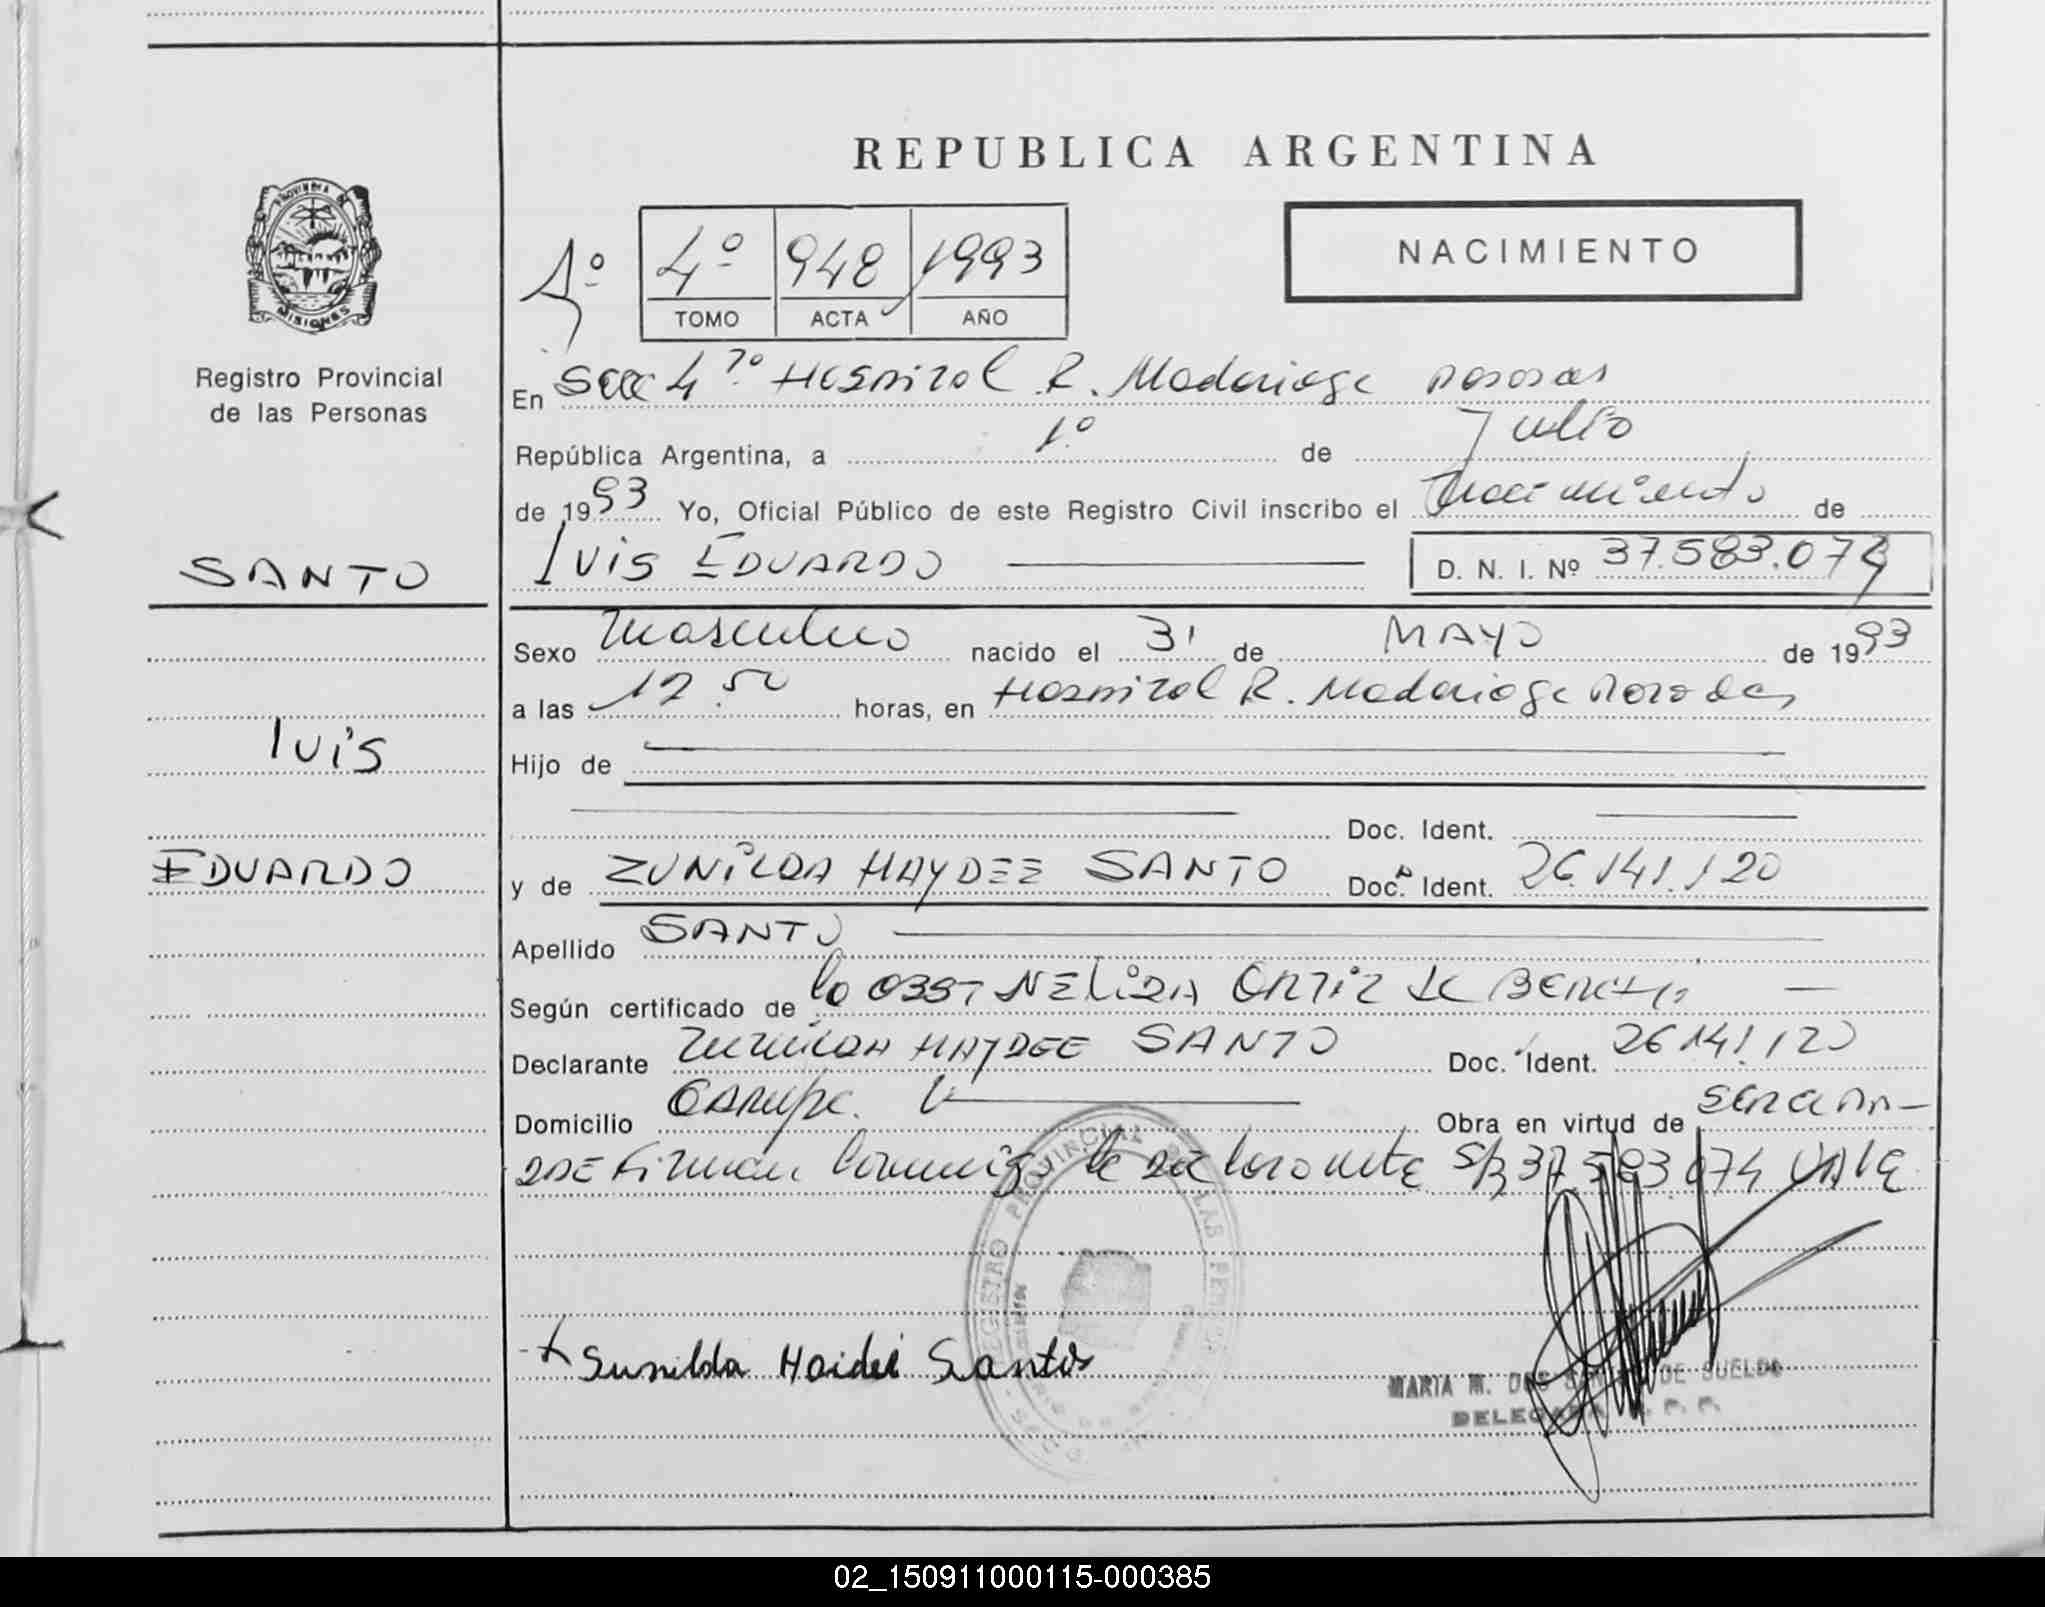 REPUBLICA ARGENTINA
PROVINCIA DE
MISIONES
Registro Provincial
de las Personas
1º
4º 948 1993
TOMO ACTA AÑO
NACIMIENTO
En Secc 4ª Hospital R. Madariaga Posadas
República Argentina, a 1º de Julio
de 1993 Yo, Oficial Público de este Registro Civil inscribo el Nacimiento de
SANTO
luis EDUARDO D. N. I. Nº 37.583.074
Sexo Masculino nacido el 31 de MAYO de 1993
a las 12.50 horas, en Hospital R. Madariaga Posadas
luis
Hijo de
Doc. Ident.
EDUARDO
y de ZUNILDA HAYDEE SANTO Doc. Ident. 26.141.120
Apellido SANTO
Según certificado de la OBST NELIDA ORTIZ de
Declarante ZUNILDA HAYDEE SANTO Doc. Ident. 26.141.120
Domicilio GARUPA. Obra en virtud de ser la
MADRE Firman S/R 37.583.074 VALE
REGISTRO PROVINCIAL DE LAS PERSONAS
Sunilda Haidei Santos
MARIA M. DOS DE SUELDO
DELEGADA
02_150911000115-000385